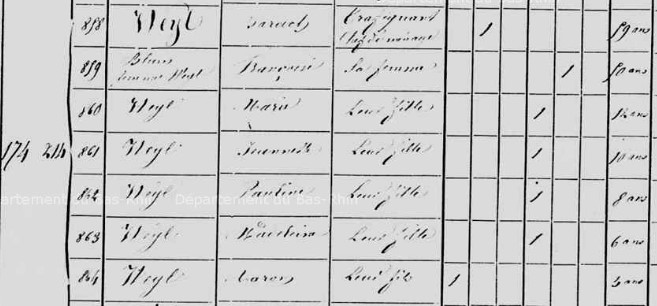 858 Weyl Baruch Trafiquant 1 59 ans
Chef de ménage
859 Blum Françoise Sa femme 1 50 ans
femme Weyl
860 Weyl Marie Leur fille 1 12 ans
174 214 861 Weyl Jeannette Leur fille 1 10 ans
862 Weyl Pauline Leur fille 1 8 ans
Département du Bas-Rhin Département du Bas-Rhin
863 Weyl Madeleine Leur fille 1 6 ans
864 Weyl Aaron Leur fils 1 3 ans